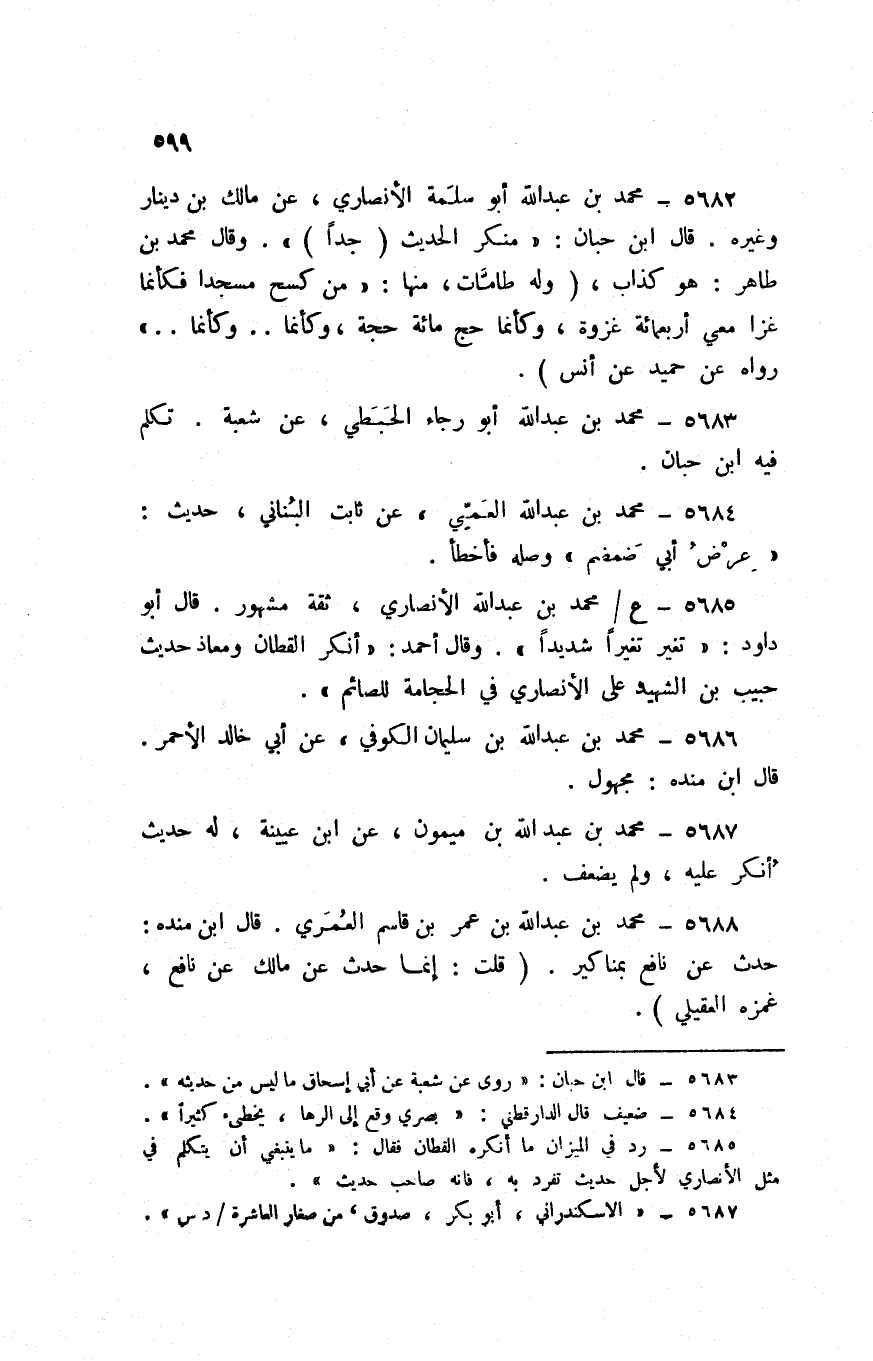 ٥٩٩
٥٦٨٢ ـ محمد بن عبدالله أبو سلَمة الأنصاري ، عن مالك بن دينار
وغيره . قال ابن حبان : « منكر الحديث ( جداً ) » . وقال محمد بن
طاهر : هو كذاب ، ( وله طامَّات ، منها : « من كسح مسجدا فكأنما
غزا معي أربعمائة غزوة ، وكأنما حج مائة حجة ، وكأنما .. وكأنما .. »
رواه عن حميد عن أنس ) .
٥٦٨٣ ـ محمد بن عبدالله أبو رجاء الحَبَطي ، عن شعبة . تكلم
فيه ابن حبان .
٥٦٨٤ ـ محمد بن عبدالله العَمِّيِّ ، عن ثابت البُناني ، حديث :
« عِرْضُ أبي ضَمضم » وصله فأخطأ .
٥٦٨٥ ـ ع / محمد بن عبدالله الأنصاري ، ثقة مشهور . قال أبو
داود : « تغير تغيراً شديداً » . وقال أحمد : « أنكر القطان ومعاذ حديث
حبيب بن الشهيد على الأنصاري في الحجامة للصائم » .
٥٦٨٦ ـ محمد بن عبدالله بن سليمان الكوفي ، عن أبي خالد الأحمر .
قال ابن منده : مجهول .
٥٦٨٧ ـ محمد بن عبدالله بن ميمون ، عن ابن عيينة ، له حديث
أُنكر عليه ، ولم يضعف .
٥٦٨٨ ـ محمد بن عبدالله بن عمر بن قاسم العُمَري . قال ابن منده :
حدث عن نافع بمناكير . ( قلت : إنما حدث عن مالك عن نافع ،
غمزه العقيلي ) .
٥٦٨٣ ـ قال ابن حبان : « روى عن شعبة عن أبي إسحاق ما ليس من حديثه » .
٥٦٨٤ ـ ضعيف قال الدارقطني : « بصري وقع إلى الرها ، يخطىء كثيراً » .
٥٦٨٥ ـ رد في الميزان ما أنكره القطان فقال : « ما ينبغي أن يتكلم في
مثل الأنصاري لأجل حديث تفرد به ، فانه صاحب حديث » .
٥٦٨٧ ـ « الاسكندراني ، أبو بكر ، صدوق ، من صغار العاشرة / د س » .